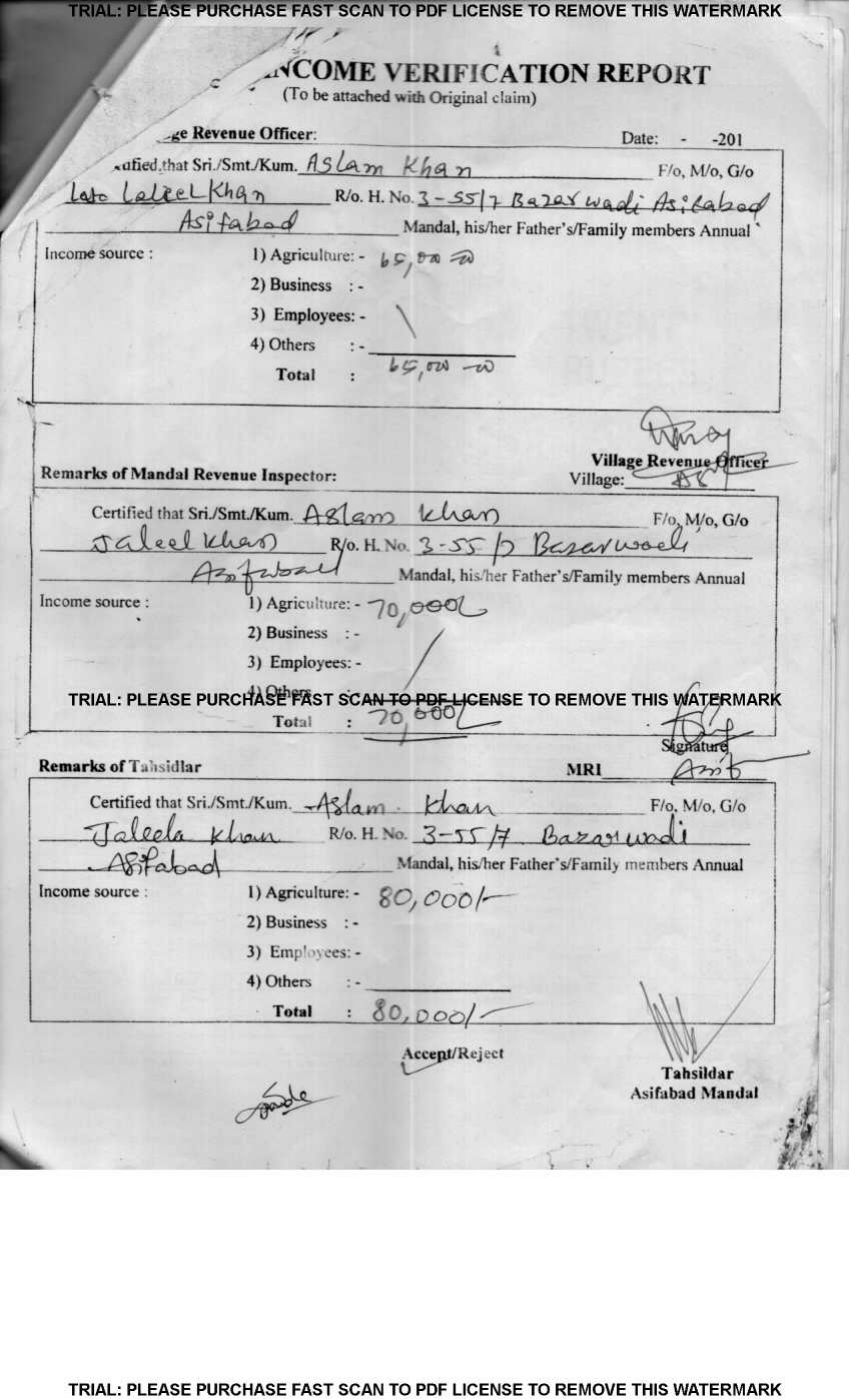 TRIAL: PLEASE PURCHASE FAST SCAN TO PDF LICENSE TO REMOVE THIS WATERMARK
INCOME VERIFICATION REPORT
(To be attached with Original claim)
ge Revenue Officer: Date: - -201
tified that Sri./Smt./Kum. Aslam Khan F/o, M/o, G/o
Late Laleel Khan R/o. H. No. 3-55/7 Bazar wadi Asifabad
Asifabad Mandal, his/her Father's/Family members Annual
Income source : 1) Agriculture: - 65,000
2) Business : -
3) Employees: -
4) Others : -
Total : 65,000
Village Revenue Officer
Remarks of Mandal Revenue Inspector: Village:
Certified that Sri./Smt./Kum. Aslam Khan F/o, M/o, G/o
Jaleel Khan R/o. H. No. 3-55/7 Bazarwadi
Asifabad Mandal, his/her Father's/Family members Annual
Income source : 1) Agriculture: - 70,000/-
2) Business : -
3) Employees: -
4) Others :
TRIAL: PLEASE PURCHASE FAST SCAN TO PDF LICENSE TO REMOVE THIS WATERMARK
Total : 70,000/-
Signature
Remarks of Tahsidlar MRI
Certified that Sri./Smt./Kum. Aslam Khan F/o, M/o, G/o
Jaleela Khan R/o. H. No. 3-55/7 Bazarwadi
Asifabad Mandal, his/her Father's/Family members Annual
Income source : 1) Agriculture: - 80,000/-
2) Business : -
3) Employees: -
4) Others : -
Total : 80,000/-
Accept/Reject
Tahsildar
Asifabad Mandal
TRIAL: PLEASE PURCHASE FAST SCAN TO PDF LICENSE TO REMOVE THIS WATERMARK